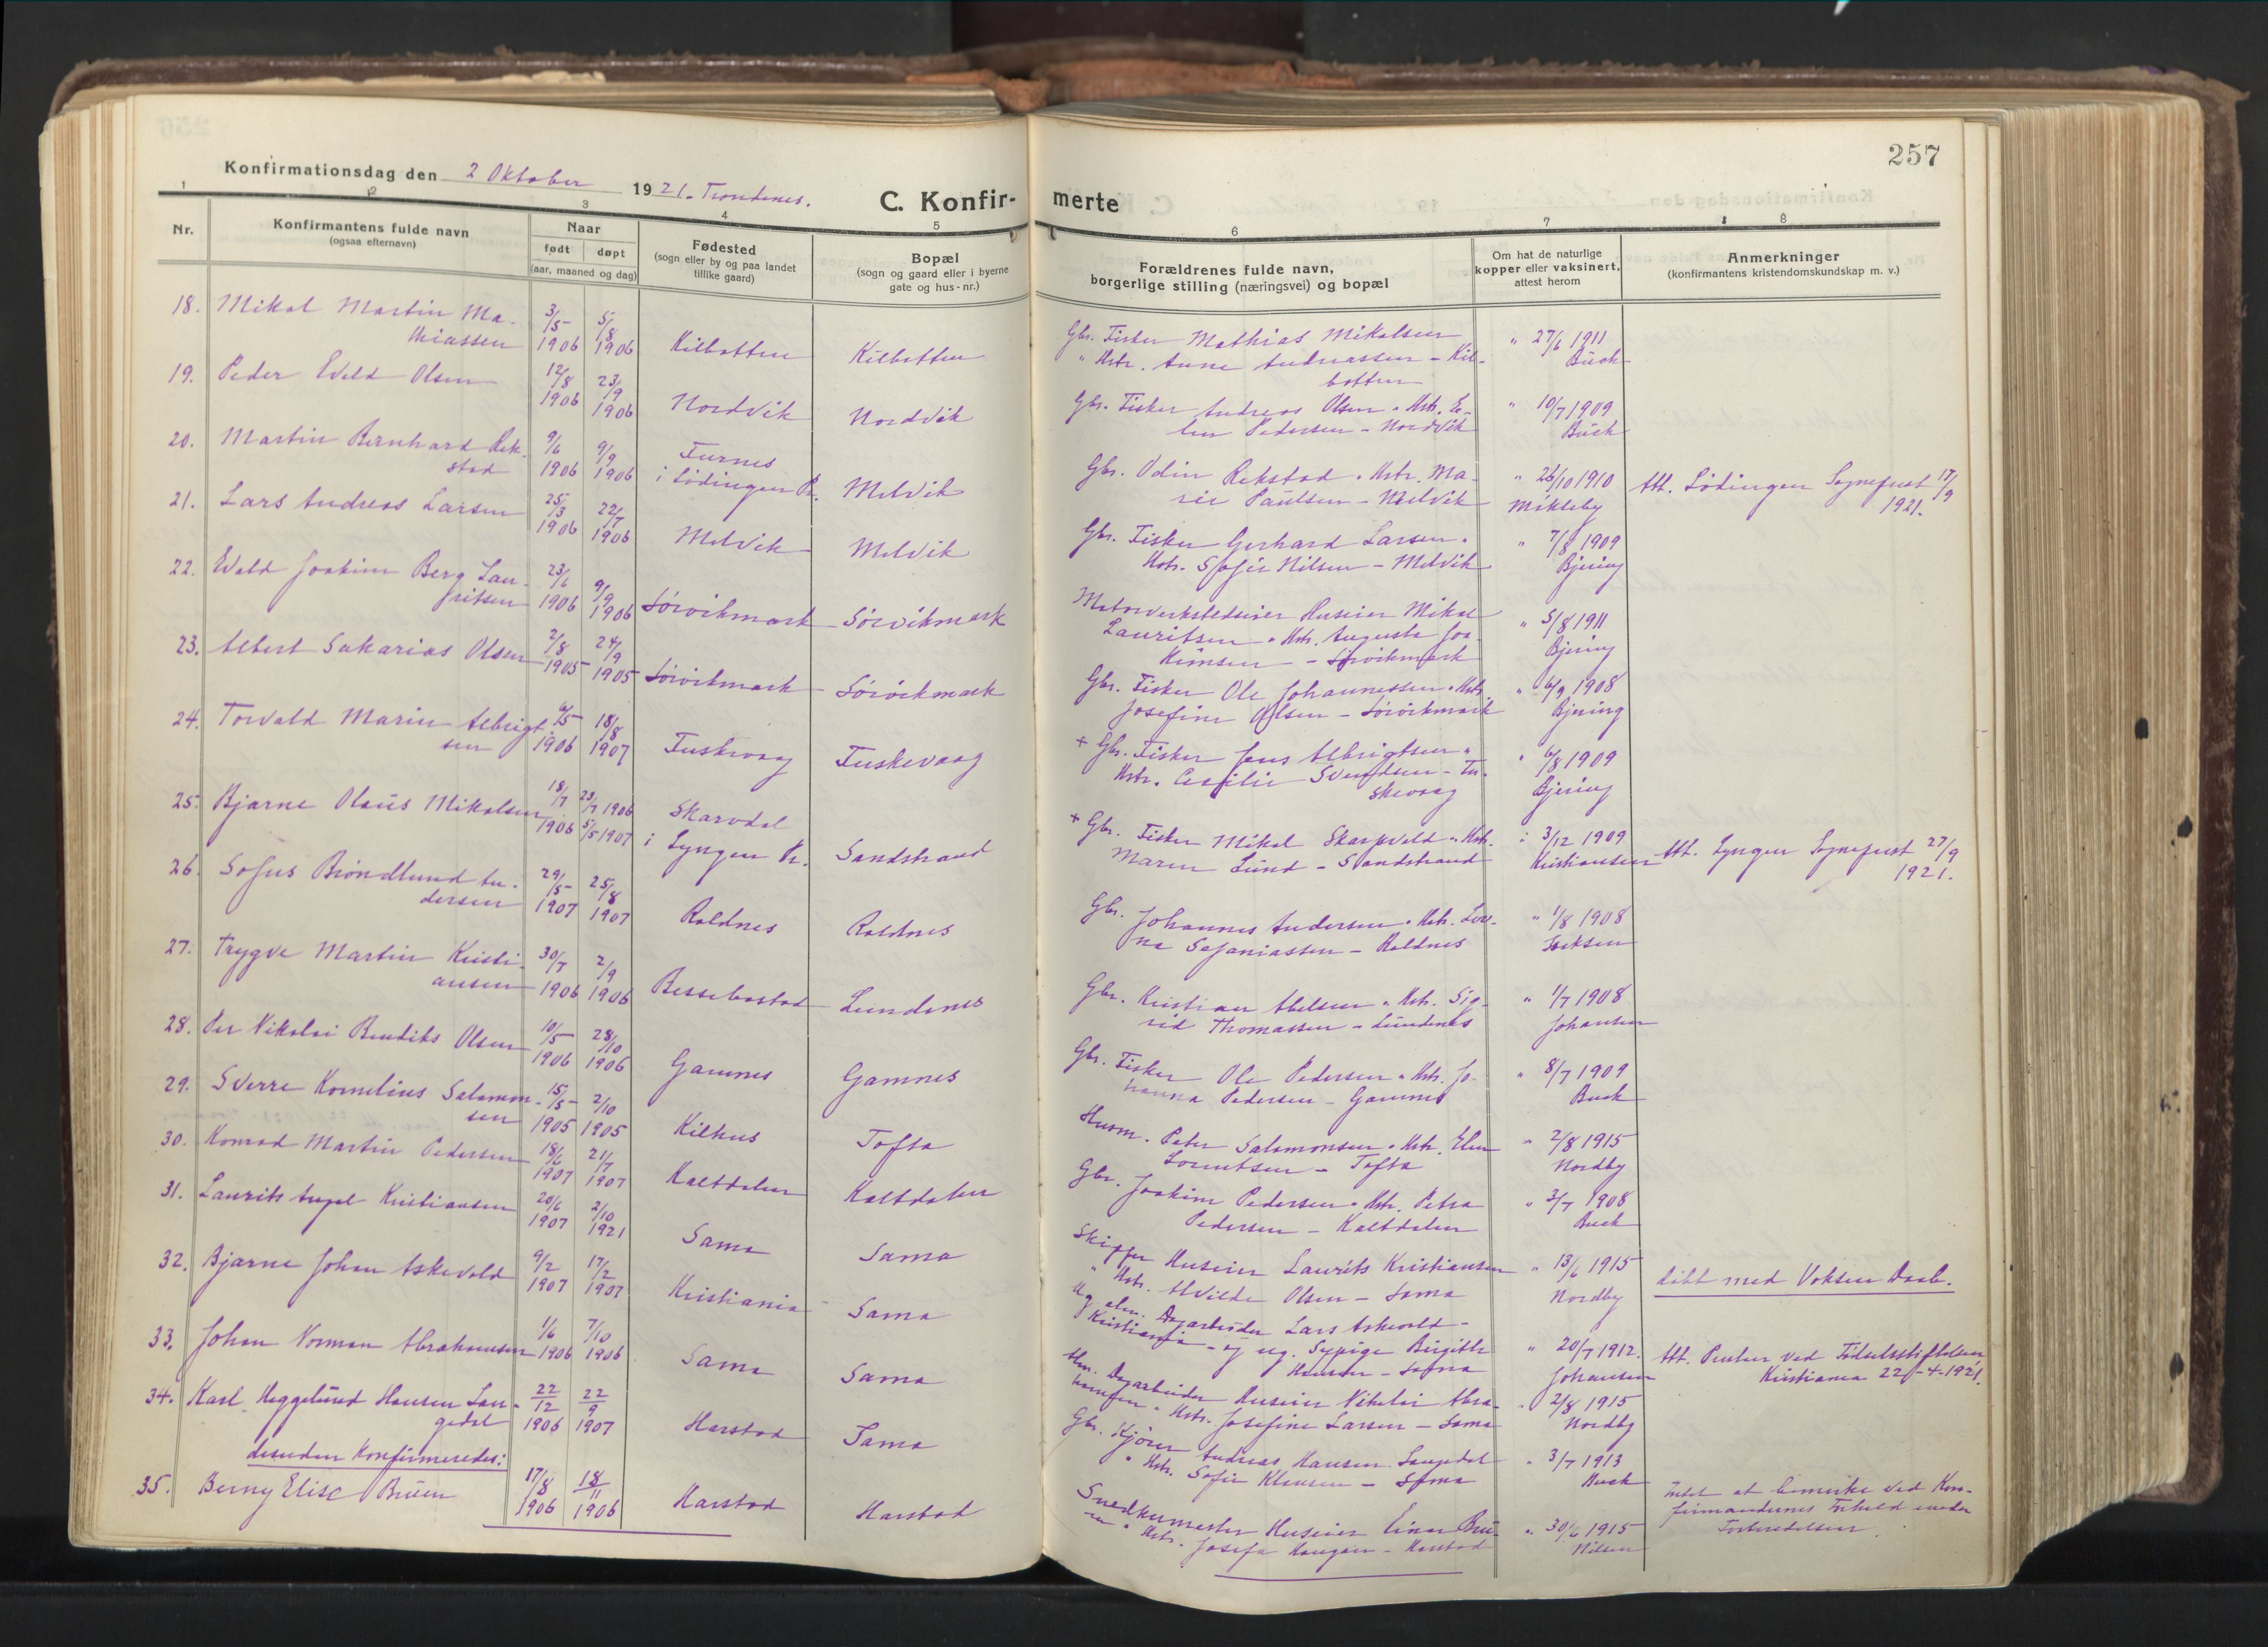 257
Konfirmationsdag den 2 Oktober 1921. Trondenes.
C. Konfirmerte
1 2 3 4 5 6 7 8
Nr.
Konfirmantens fulde navn
(ogsaa efternavn)
Naar
født døpt
(aar, maaned og dag)
Fødested
(sogn eller by og paa landet
tillike gaard)
Bopæl
(sogn og gaard eller i byerne
gate og hus-nr.)
Forældrenes fulde navn,
borgerlige stilling (næringsvei) og bopæl
Om hat de naturlige
kopper eller vaksinert,
attest herom
Anmerkninger
(konfirmantens kristendomskundskap m. v.)
18. Mikal Martin Ma-
thiassen 3/5 1906 5/8 1906 Kilbotten Kilbotten
Gbr. Fisker Mathias Mikalsen
" Hstr. Anne Andreassen - Kil-
botten
" 27/6 1911
Buch
19. Peder Evald Olsen 12/8 1906 23/9 1906 Nordvik Nordvik
Gbr. Fisker Andreas Olsen " Hstr. El-
len Pedersen - Nordvik
" 10/7 1909
Buch
20. Martin Bernhard Rek-
stad 9/6 1906 9/9 1906 Furnes
i Lødingen Pr. Melvik
Gbr. Odin Rekstad " Hstr. Ma-
rie Paulsen - Melvik
" 26/10 1910
Mikleby
Att. Lødingen Sognepræst 17/9
1921.
21. Lars Andreas Larsen 25/3 1906 22/7 1906 Melvik Melvik
Gbr. Fisker Gerhard Larsen "
Hstr. Sofie Nilsen - Melvik
" 7/8 1909
Bjering
22. Evald Joakim Berg Lau-
ritsen 23/6 1906 9/9 1906 Sørvikmark Sørvikmark
Motorverkstedseier Huseier Mikal
Lauritsen " Hstr. Augusta Joa-
kimsen - Sørvikmark
" 5/8 1911
Bjering
23. Albert Sakarias Olsen 2/8 1905 24/9 1905 Sørvikmark Sørvikmark
Gbr. Fisker Ole Johannessen " Hstr.
Josefine Olsen - Sørvikmark
" 6/9 1908
Bjering
24. Torvald Marin Albrigt-
sen 6/5 1906 18/8 1907 Fuskevaag Fuskevaag
+ Gbr. Fisker Jens Albrigtsen "
Hstr. Cecilie Svendsen - Fu-
skevaag
" 6/8 1909
Bjering
25. Bjarne Olaus Mikalsen 18/7 1906 23/7 1906 5/5 1907 Skarvdal
i Lyngen Pr. Sandstrand
+ Gbr. Fisker Mikal Skarpvold " Hstr.
Maren Lund - Sandstrand
3/12 1909
Kristiansen
Att. Lyngen Sognepræst 27/9
1921.
26. Sofus Brøndlund An-
dersen 29/5 1907 25/8 1907 Roldnes Roldnes
Gbr. Johannes Andersen " Hstr. Lov-
na Sefaniassen - Roldnes
" 1/8 1908
27. Trygve Martin Kristi-
ansen 30/7 1906 2/9 1906 Bessebostad Lundenes
Gbr. Kristian Abelsen " Hstr. Sig-
rid Thomassen - Lundenes
" 1/7 1908
Johansen
28. Per Nikolai Bendiks Olsen 10/5 1906 28/10 1906 Gamnes Gamnes
Gbr. Fisker Ole Pedersen " Hstr. Jo-
hanna Pedersen - Gamnes
" 8/7 1909
Buch
29. Sverre Kornelius Salamon-
sen 15/5 1905 2/10 1905 Kilhus Tofta
Husm. Peter Salamonsen " Hstr. Elen
Lorentsen - Tofta
" 2/8 1915
Nordby
30. Konrad Martin Pedersen 18/6 1907 21/7 1907 Kaltdalen Kaltdalen
Gbr. Joakim Pedersen " Hstr. Petra
Pedersen - Kaltdalen
" 3/7 1908
Buch
31. Laurits August Kristiansen 20/6 1907 2/10 1921 Sama Sama
Skipper Huseier Laurits Kristiansen
" Hstr. Alvilde Olsen - Sama
" 13/6 1915
Nordby
døbt med Voksen Daab.
32. Bjarne Johan Askevold 9/2 1907 17/2 1907 Kristiania Sama
Ug. alm. Dagarbeider Lars Askevold -
Kristiania - og ug. Sypige Birgitte
Hansen - Sama
" 20/7 1912.
Johansen
Att. Presten ved Fødselsstiftelsen
Kristiania 22-4-1921.
33. Johan Norman Abrahamsen 1/6 1906 7/10 1906 Sama Sama
Alm. Dagarbeider Huseier Nikolai Abra-
hamsen " Hstr. Josefine Larsen - Sama
" 2/8 1915
Nordby
34. Karl Heggelund Hansen Lan-
gedal 22/12 1906 22/9 1907 Harstad Sama
Gbr. Kjører Andreas Hansen Langedal
" Hstr. Sofie Klausen - Sama
" 3/7 1913
Buch
desuden Konfirmeredes:
35. Berny Elise Bruen 17/8 1906 18/11 1906 Harstad Harstad
Snedkermester Huseier Einar Bru-
en " Hstr. Josefa Haugan - Harstad
" 30/6 1915
Nilsen
Intet at bemerke ved Kon-
firmandernes Forhold under
Forberedelsen.